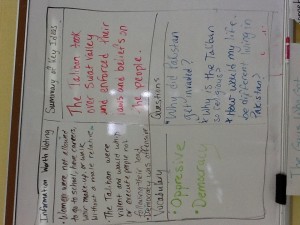 Summary of Key Ideas
The Taliban took
over Swat Valley
and enforced their
laws and beliefs on
the people.
Questions
• Why did Pakistan
get invaded?
• Why is the Taliban
so religious?
• How would my life
be different living in
Pakistan?
Information Worth Noting
• Women were not allowed
to go to school, have careers,
wear make-up or walk
without a male relative.
The Taliban were
violent and would whip
or execute people not
following their laws.
Democracy was
Vocabulary
• Oppressive
• Democracy